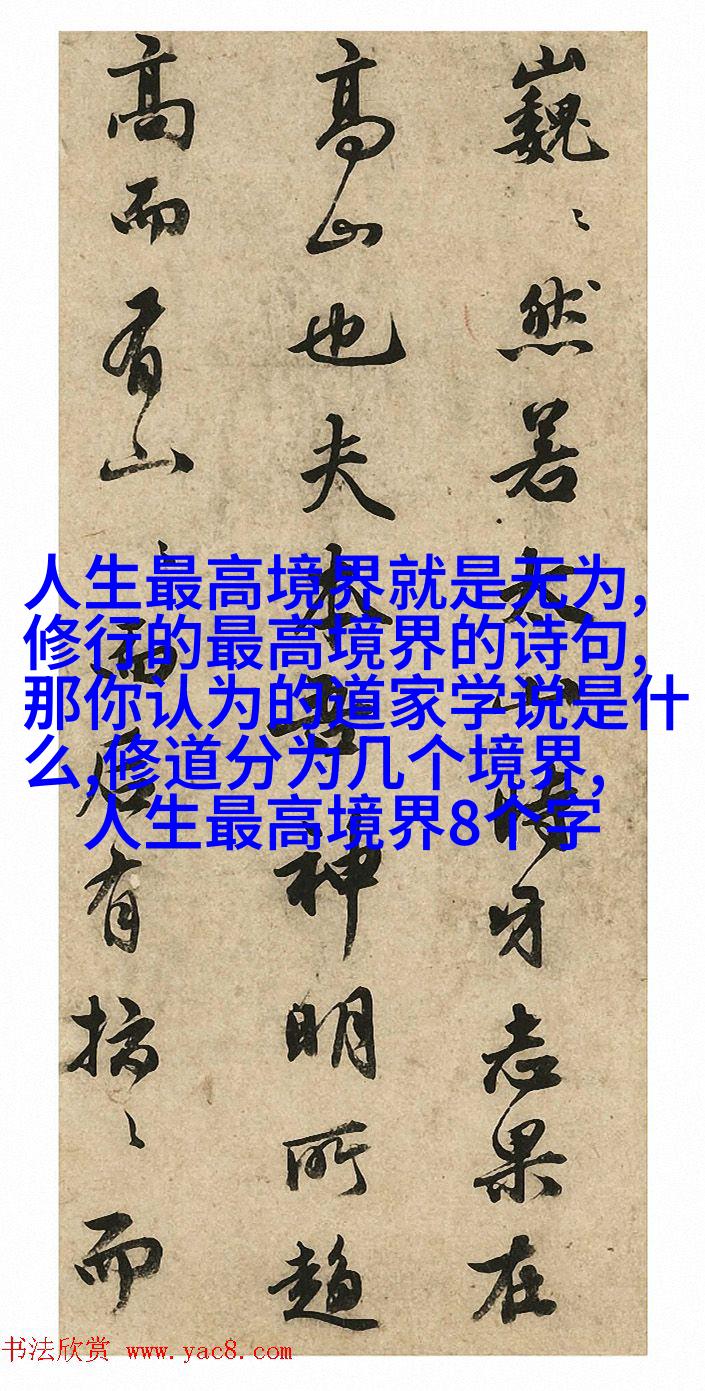 巍〻然若太山時牙志果在
高山也夫本吾神明所趨
高而有山〻而居有搞〻而
人生最高境界就是无为,
修行的最高境界的诗句,
那你认为的道家学说是什
么,修道分为几个境界,
人生最高境界8个字
书法欣赏 www.yac8.com